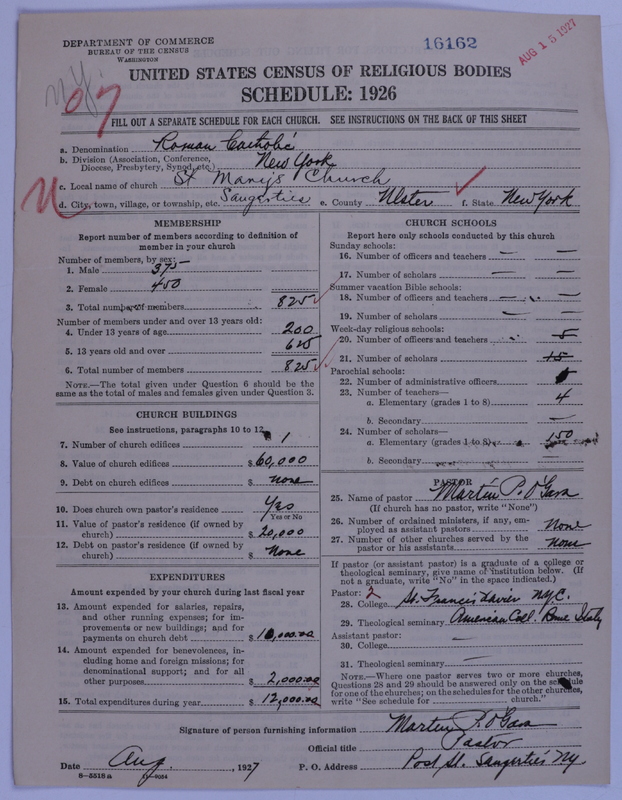 DEPARTMENT OF COMMERCE
BUREAU OF THE CENSUS
WASHINGTON
16162
AUG 15 1927
N.Y.
07
UNITED STATES CENSUS OF RELIGIOUS BODIES
SCHEDULE: 1926
FILL OUT A SEPARATE SCHEDULE FOR EACH CHURCH. SEE INSTRUCTIONS ON THE BACK OF THIS SHEET
a. Denomination Roman Catholic
b. Division (Association, Conference, Diocese, Presbytery, Synod, etc.) New York
c. Local name of church St Mary's Church
d. City, town, village, or township, etc. Saugerties e. County Ulster f. State New York
MEMBERSHIP
Report number of members according to definition of
member in your church
Number of members, by sex:
1. Male 375
2. Female 450
3. Total number of members 825
Number of members under and over 13 years old:
4. Under 13 years of age 200
5. 13 years old and over 625
6. Total number of members 825
NOTE.—The total given under Question 6 should be the
same as the total of males and females given under Question 3.
CHURCH BUILDINGS
See instructions, paragraphs 10 to 12
7. Number of church edifices 1
8. Value of church edifices $ 60,000
9. Debt on church edifices $ none
10. Does church own pastor's residence? Yes
Yes or No
11. Value of pastor's residence (if owned by
church) $ 20,000
12. Debt on pastor's residence (if owned by
church) $ None
EXPENDITURES
Amount expended by your church during last fiscal year
13. Amount expended for salaries, repairs,
and other running expenses; for im-
provements or new buildings; and for
payments on church debt $ 10,000.00
14. Amount expended for benevolences, in-
cluding home and foreign missions; for
denominational support; and for all
other purposes $ 2,000.00
15. Total expenditures during year $ 12,000.00
CHURCH SCHOOLS
Report here only schools conducted by this church
Sunday schools:
16. Number of officers and teachers — —
17. Number of scholars — —
Summer vacation Bible schools:
18. Number of officers and teachers — —
19. Number of scholars — —
Week-day religious schools:
20. Number of officers and teachers
21. Number of scholars 15
Parochial schools:
22. Number of administrative officers
23. Number of teachers—
a. Elementary (grades 1 to 8) 4
b. Secondary —
24. Number of scholars—
a. Elementary (grades 1 to 8) 150
b. Secondary —
PASTOR
25. Name of pastor Martin P. O'Gara
(If church has no pastor, write "None")
26. Number of ordained ministers, if any, em-
ployed as assistant pastors None
27. Number of other churches served by the
pastor or his assistants None
If pastor (or assistant pastor) is a graduate of a college or
theological seminary, give name of institution below. (If
not a graduate, write "No" in the space indicated.)
Pastor: 2
28. College St. Francis Xavier N.Y.C.
29. Theological seminary American Coll. Rome Italy
Assistant pastor:
30. College —
31. Theological seminary —
NOTE.—Where one pastor serves two or more churches,
Questions 28 and 29 should be answered only on the schedule
for one of the churches; on the schedules for the other churches,
write "See schedule for church."
Signature of person furnishing information Martin P. O'Gara
Official title Pastor
Date Aug. , 1927 P. O. Address Post St. Saugerties NY
8—5518a 11—9034